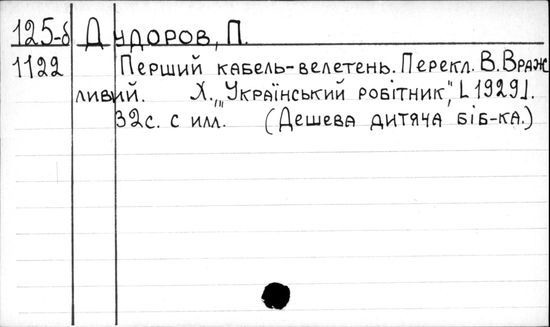 125-б Дудоров, П.
1122 Перший кабель-велетень. Перекл. В. Враж
ливий. Х., „Український робітник", [1929].
32с. с илл. (Дешева дитяча біб-ка.)